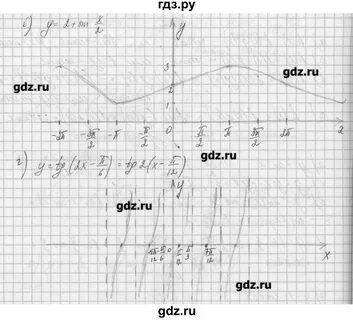 гдз.ру
в) y = 2 + sin x/2
y
gdz.ru
gdz.ru
3
2
1
-2π -3π/2 -π -π/2 0 π/2 π 3π/2 2π
gdz.ru
gdz.ru
г) y = tg (2x - π/6) = tg 2(x - π/12)
gdz.ru
y
gdz.ru
0 π/12 π/3 7π/12
x
gdz.ru
gdz.ru